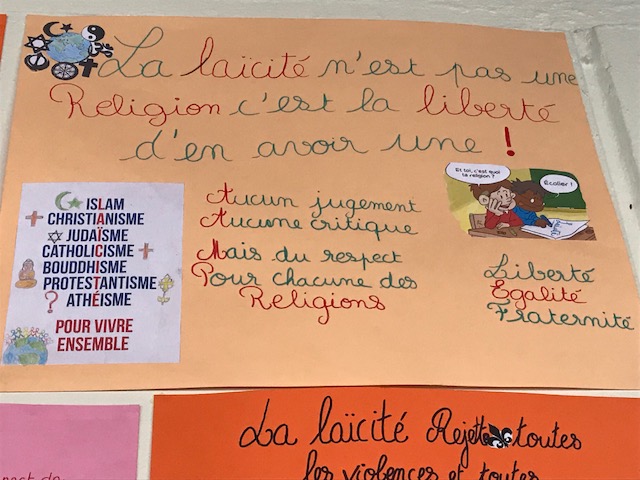 La laïcité n'est pas une
Religion c'est la liberté
d'en avoir une !
ISLAM
CHRISTIANISME
JUDAÏSME
CATHOLICISME
BOUDDHISME
PROTESTANTISME
ATHÉISME
POUR VIVRE
ENSEMBLE
Aucun jugement
Aucune critique
Mais du respect
Pour chacune des
Religions
Et toi, c'est quoi
ta religion ?
Écolier !
Liberté
Egalité
Fraternité
La laïcité Rejette toutes
les violences et toutes